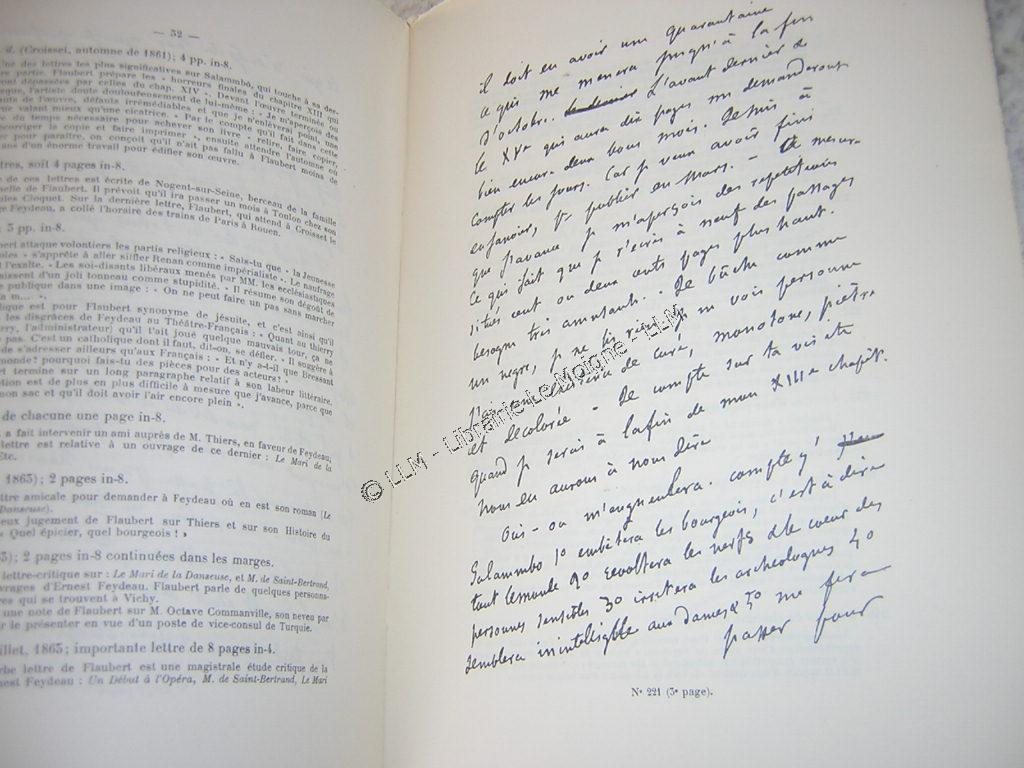 — 52 —
d. (Croisset, automne de 1861); 4 pp. in-8.
ne des lettres les plus significatives sur Salammbô, qui touche à sa der-
re partie. Flaubert prépare les « horreurs finales du chapitre XIII qui
ront dépassées par celles du chap. XIV ». Devant l'œuvre terminée ou
que, l'artiste doute douloureusement de lui-même : « Je m'aperçois des
uts de l'œuvre, défauts irrémédiables et que je n'enlèverai pas, une
ue valant mieux qu'une cicatrice. » Par le compte qu'il fait dans cette
e du temps nécessaire pour achever son livre, le relire, faire copier,
corriger la copie et faire imprimer », ensuite attendre l'automne
er pour paraître, on conçoit qu'il n'ait pas fallu à Flaubert moins de
ans d'un énorme travail pour édifier son œuvre.
tres, soit 4 pages in-8.
e de ces lettres est écrite de Nogent-sur-Seine, berceau de la famille
nelle de Flaubert. Il prévoit qu'il ira passer un mois à Toulon chez son
ules Cloquet. Sur la dernière lettre, Flaubert, qui attend à Croisset le
ge Feydeau, a collé l'horaire des trains de Paris à Rouen.
; 3 pp. in-8.
bert attaque volontiers les partis religieux : « Sais-tu que « la Jeunesse
oles » s'apprête à aller siffler Renan comme impérialiste ». Le naufrage
l'exalte. « Les soi-disants libéraux menés par MM. les ecclésiastiques
aissent d'un joli tonneau comme stupidité. » Il résume son dégoût de
e publique dans une image : « On ne peut faire un pas sans marcher
a m... ».
lique est pour Flaubert synonyme de jésuite, et c'est ainsi qu'il
les disgrâces de Feydeau au Théâtre-Français : « Quant au thierry
rry, l'administrateur) qu'il t'ait joué quelque mauvais tour, ça ne
pas. C'est un catholique dont il faut, dit-on, se défier. » Il suggère à
de s'adresser ailleurs qu'aux Français : « Et n'y a-t-il que Bressant
monde? pourquoi fais-tu des pièces pour des acteurs? »
rt termine sur un long paragraphe relatif à son labeur littéraire.
tion est de plus en plus difficile à mesure que j'avance, parce que
mon sac et qu'il doit avoir l'air encore plein ».
de chacune une page in-8.
a fait intervenir un ami auprès de M. Thiers, en faveur de Feydeau,
lettre est relative à un ouvrage de ce dernier : Le Mari de la
Etc.
1865); 2 pages in-8.
ttre amicale pour demander à Feydeau où en est son roman (Le
Danseuse).
eux jugement de Flaubert sur Thiers et sur son Histoire du
« Quel épicier, quel bourgeois ! »
5); 2 pages in-8 continuées dans les marges.
lettre-critique sur : Le Mari de la Danseuse, et M. de Saint-Bertrand,
uvrages d'Ernest Feydeau. Flaubert parle de quelques person-
res qui se trouvent à Vichy.
une note de Flaubert sur M. Octave Commanville, son neveu par
r le présenter en vue d'un poste de vice-consul de Turquie.
illet, 1865; importante lettre de 8 pages in-4.
rbe lettre de Flaubert est une magistrale étude critique de la
rnest Feydeau : Un Début à l'Opéra, M. de Saint-Bertrand, Le Mari
il doit en avoir une quarantaine
ce qui me menera jusqu'à la fin
d'octobre. le dernier L'avant dernier &
le XVe qui aura dix pages me demanderont
bien encore deux bons mois. Je suis à
compter les jours. Car je veux avoir fini
en janvier, pr publier en Mars. – A mesure
que j'avance je m'aperçois des repetitions
ce qui fait que je r'écris à neuf des passages
situés cent ou deux cents pages plus haut.
besogne tres amusante. – Je bûche comme
un negre, je ne lis rien, je ne vois personne
J'ai une existence de curé, monotone, piètre
et decolorée – Je compte sur ta visite
quand je serai à la fin de mon XIIIe chapit.
nous en aurons à nous dire
Oui – on m'engueulera. compte y
Salammbo 1o embêtera les bourgeois, c'est à dire
tout le monde 2o revoltera les nerfs & le cœur des
personnes sensibles 3o irritera les archeologues 4o
semblera inintelligible aux dames & 5o me fera
passer pour
No 221 (3e page).
© LLM - Librairie Le Moigne - LLM